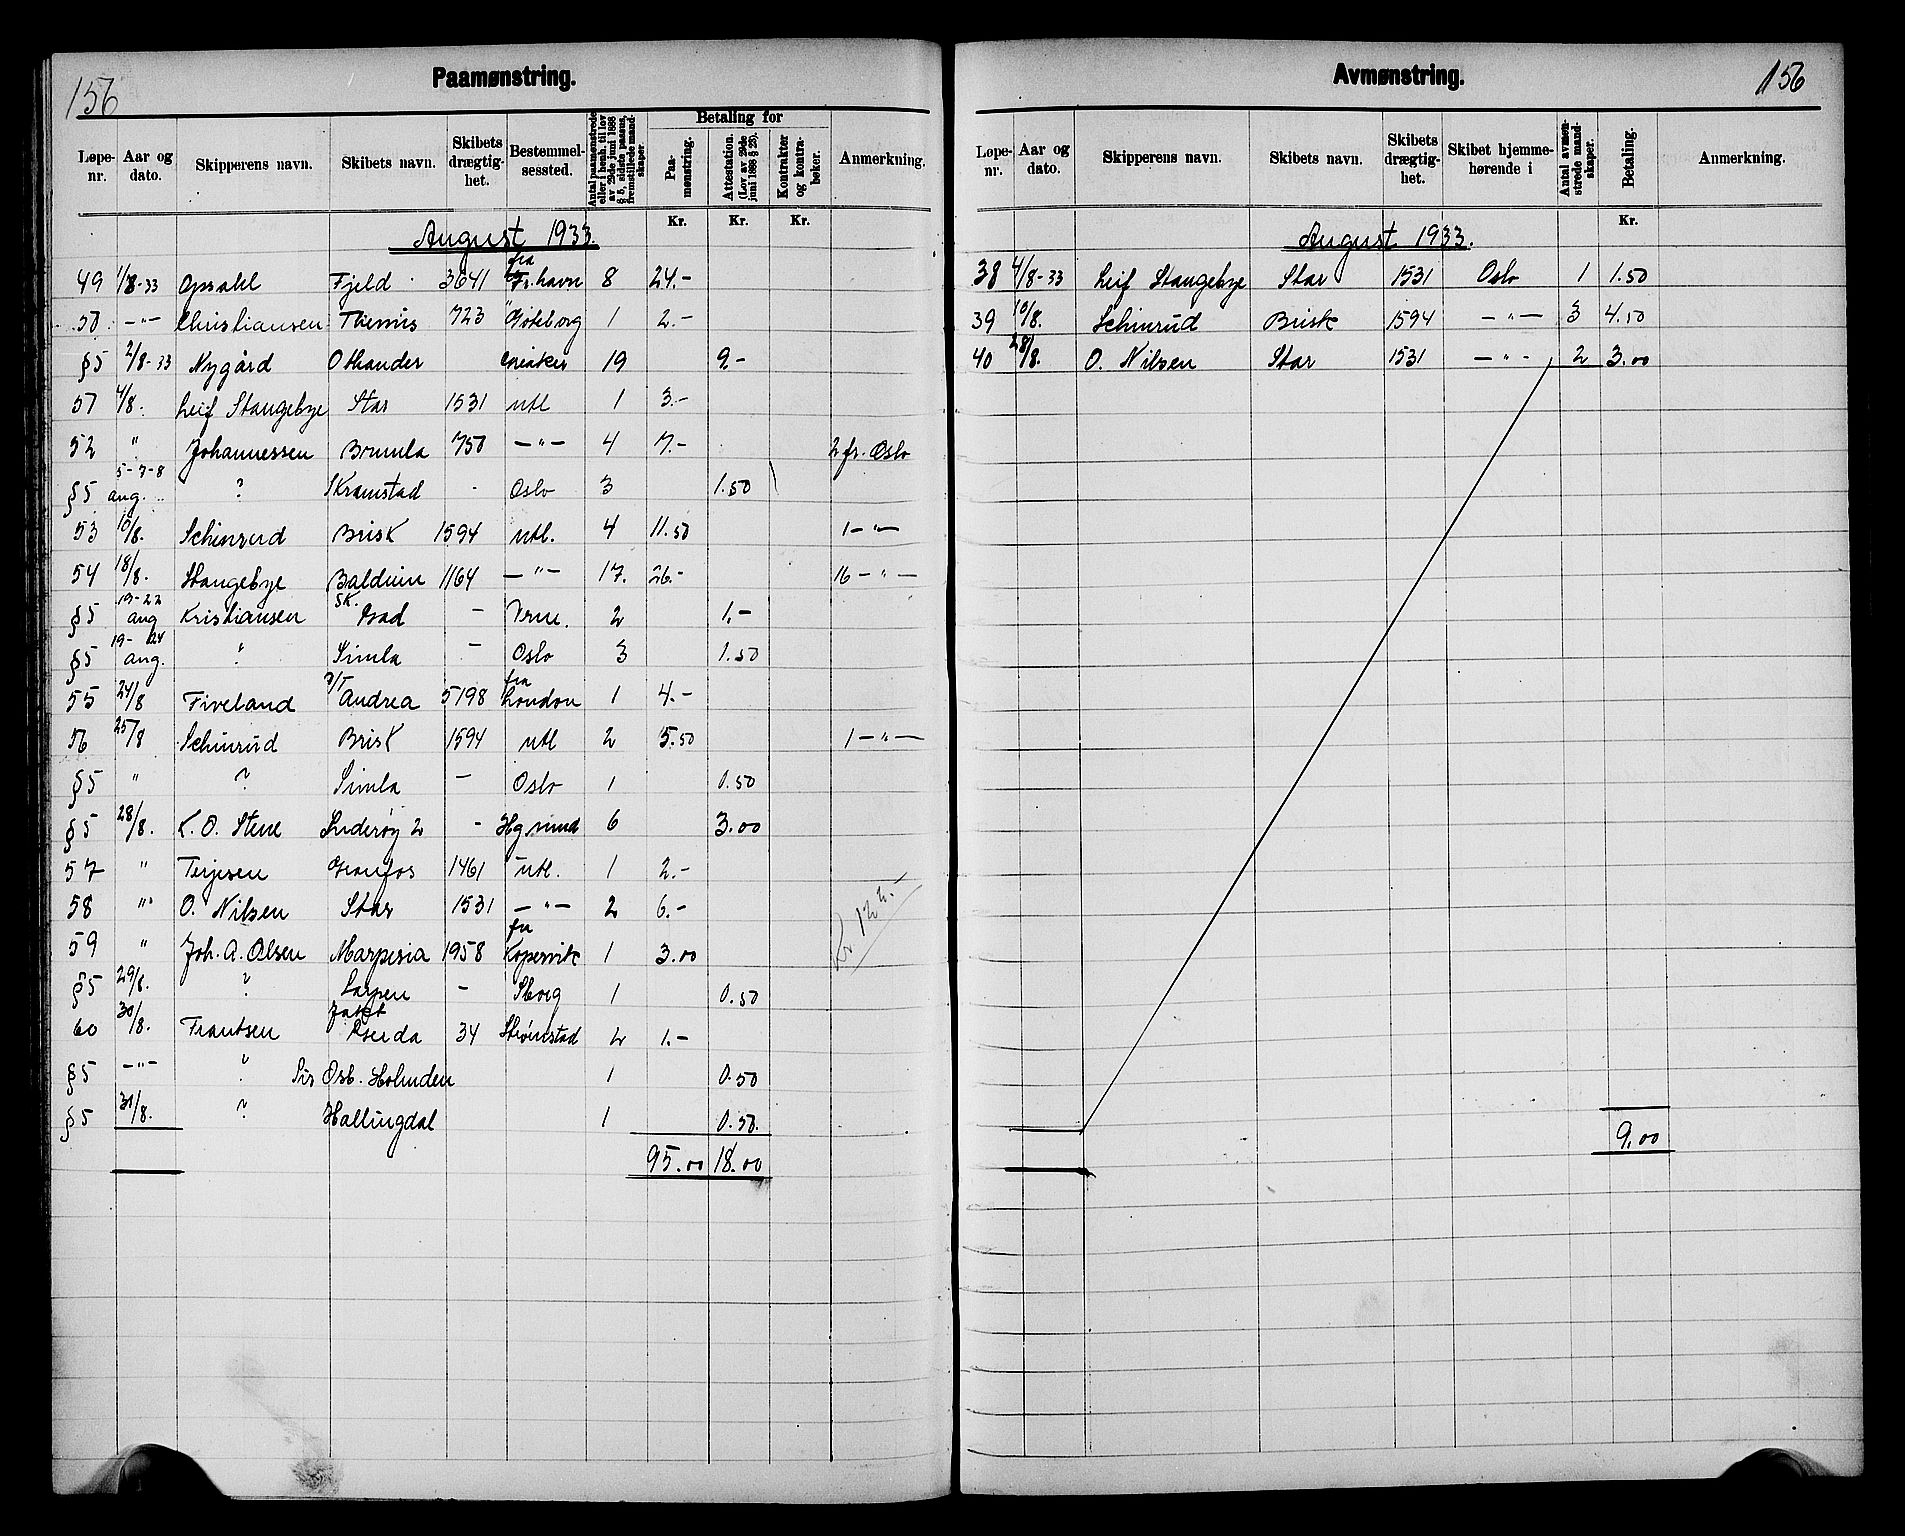 156 Paamønstring.
Løpe-nr. Aar og dato. Skipperens navn. Skibets navn. Skibets drægtig-het. Bestemmel-sessted. Antal paamønstrede eller i henh. til lov av 29de juni 1888 § 5, sidste passus, fremstillede mand-skaper. Betaling for Paa-mønstring. Attestation. (Lov av 29de juni 1888 § 23). Kontrakter og kontra-bøker. Anmerkning.
Kr. Kr. Kr.
August 1933.
49 1/8-33 Opsahl Fjeld 3641 fra Fr.havn 8 24.-
50 -"- Christiansen Themis 723 " Göteborg 1 2.-
§5 2/8-33 Nygård Othander 19 9.-
51 4/8. Leif Stangebye Star 1531 utl 1 3.-
52 " Johannessen Brumla 750 -"- 4 7.- 2 fr. Oslo
§5 5-7-8 aug. ? Skramstad - Oslo 3 1.50
53 10/8. Schinrud Brisk 1594 utl. 4 11.50 1 -"-
54 18/8. Stangebye Balduin 1164 -"- 17. 26.- 16 -"-
§5 19-22 aug Kristiansen SK. - 2 1.-
§5 19-24 aug. ? Simla - Oslo 3 1.50
55 24/8 Fiveland M/T Andrea 5198 fra London 1 4.-
56 25/8 Schinrud Brisk 1594 utl 2 5.50 1 -"-
§5 " ? Simla - Oslo 1 0.50
§5 28/8. K. O. Stene Inderøy 2 - Hgsund 6 3.00
57 " Terjesen Granfos 1461 utl. 1 2.-
58 " O. Nilsen Star 1531 -"- 2 6.-
59 " Joh. A. Olsen Marpesia 1958 fra Kopervik 1 3.00
Kr 122.-
§5 29/8. ? Sarpen - Sborg 1 0.50
60 30/8. Frantsen Jakt 34 Strømstad 2 1.-
§5 -"- ? Sir Osb. Holmden 1 0.50
§5 31/8. ? Hallingdal 1 0.50.
95.00 18.00
Avmønstring. 156
Løpe-nr. Aar og dato. Skipperens navn. Skibets navn. Skibets drægtig-het. Skibet hjemme-hørende i Antal avmøn-strede mand-skaper. Betaling. Anmerkning.
Kr.
August 1933.
38 4/8-33 Leif Stangebye Star 1531 Oslo 1 1.50
39 10/8. Schinrud Brisk 1594 -"- 3 4.50
40 28/8. O. Nilsen Star 1531 -"- 2 3.00
9.00